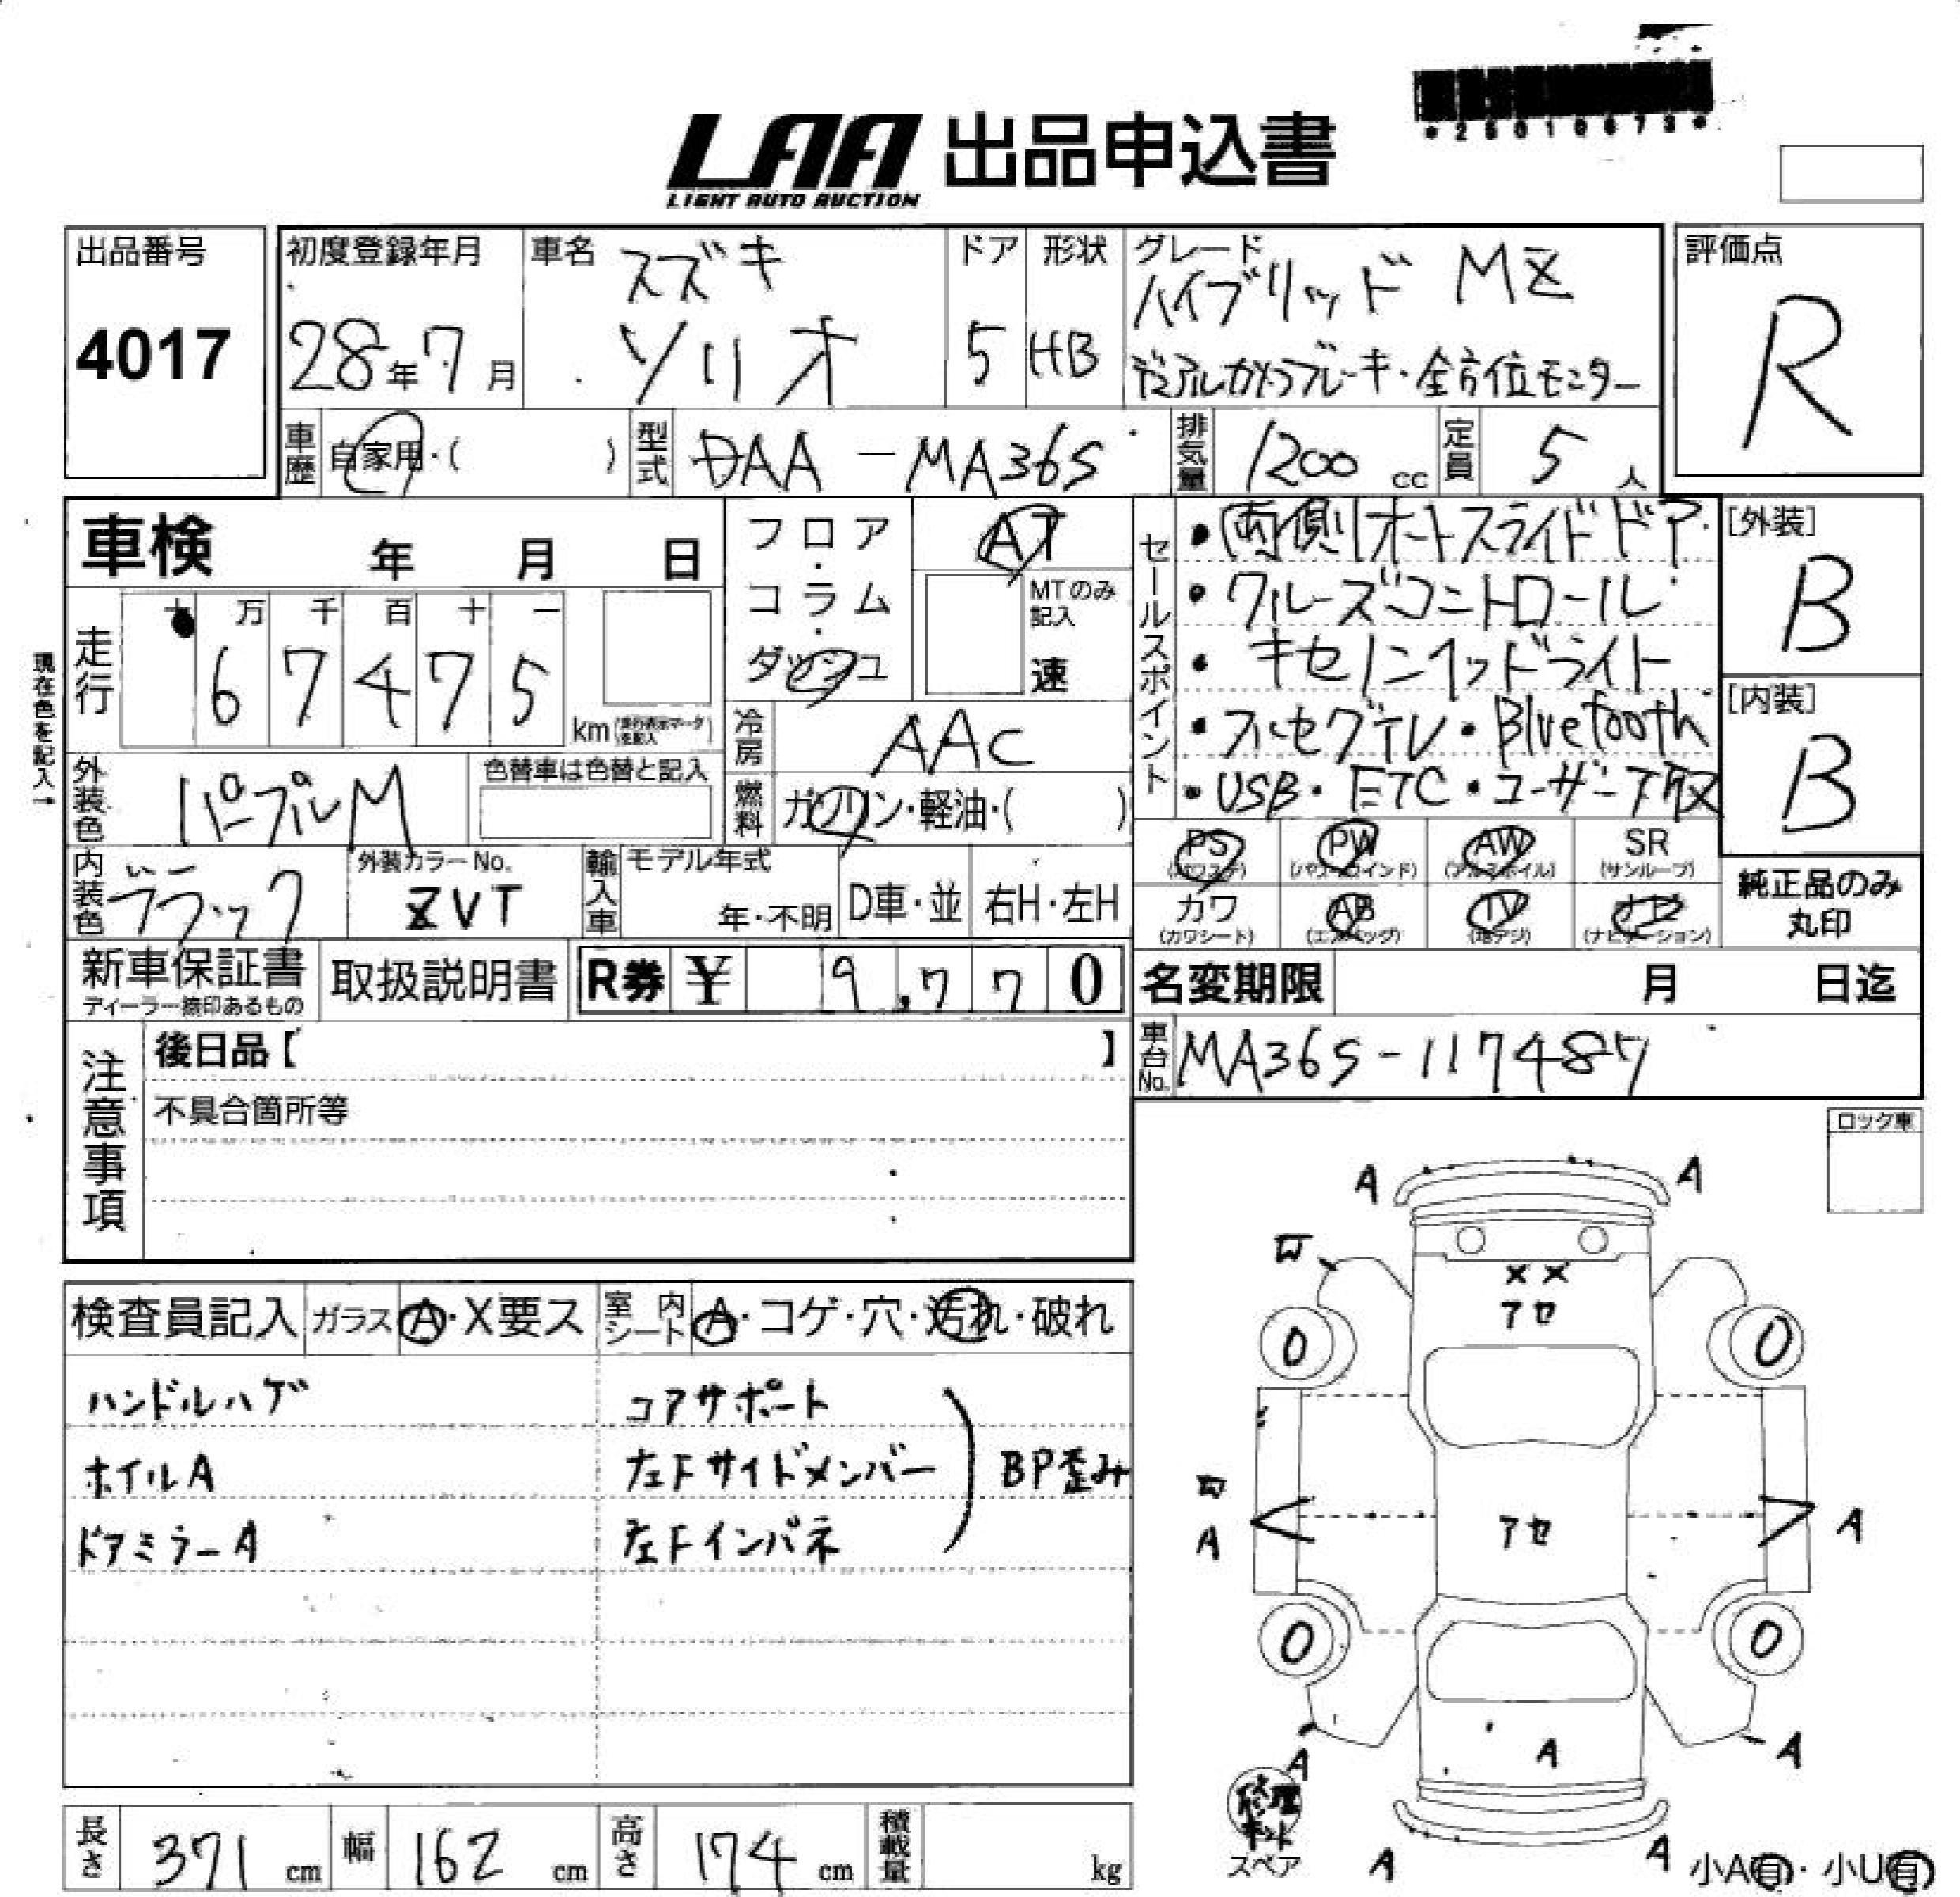 LAA 出品申込書
LIGHT AUTO AUCTION
*25010673*
出品番号
4017
初度登録年月
28年7月
車名
スズキ
ソリオ
ドア
5
形状
HB
グレード
ハイブリッド MZ
デュアルカメラブレーキ・全方位モニター
評価点
R
車歴
自家用・( )
型式
DAA-MA36S
排気量
1200 cc
定員
5 人
車検 年 月 日
フロア・コラム・ダッシュ
AT
MTのみ記入
速
走行
十 万 千 百 十 一
6 7 4 7 5
km
現在色を記入→
冷房
AAC
燃料
ガソリン・軽油・( )
外装色
パープルM
色替車は色替と記入
内装色
ブラック
外装カラーNo.
ZVT
輸入車
モデル年式
年・不明
D車・並
右H・左H
セールスポイント
・両側オートスライドドア
・クルーズコントロール
・キセノンヘッドライト
・フルセグテレビ・Bluetooth
・USB・ETC・ユーザー下取
[外装]
B
[内装]
B
PS
(パワステ)
PW
(パワーウインド)
AW
(アルミホイル)
SR
(サンルーフ)
カワ
(カワシート)
AB
(エアバッグ)
TV
(地デジ)
ナビ
(ナビゲーション)
純正品のみ
丸印
新車保証書
ディーラー捺印あるもの
取扱説明書
R券 ¥ 9,770
名変期限 月 日迄
車台No.
MA36S-117487
注意事項
後日品【 】
不具合箇所等
ロック車
検査員記入
ガラス A・X要ス
室内シート A・コゲ・穴・汚れ・破れ
ハンドルハゲ
ホイルA
ドアミラーA
コアサポート
左Fサイドメンバー
左Fインパネ
BP歪み
A
A
W
××
アセ
0
0
W
A
アセ
A
0
0
A
A
A
修理キット
スペア
A
A
小A有・小U有
長さ
371 cm
幅
162 cm
高さ
174 cm
積載量
kg